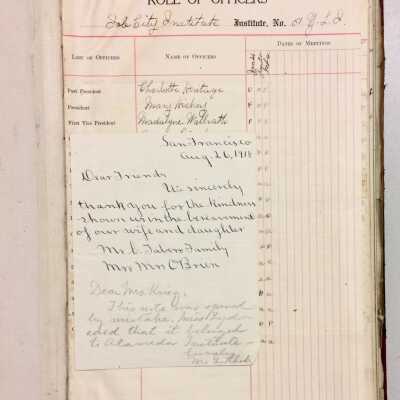 ROLL OF OFFICERS
Institute, No. 51 Y. L. I.
DATES OF MEETING
LIST OF OFFICERS
NAME OF OFFICERS
PAST PRESIDENT
Charlotte
PRESIDENT
Mary
FIRST VICE PRESIDENT
Madalyne Wallrath
San Francisco
Aug. 26, 1918
Dear Friends
We sincerely
thank you for the kindness
shown us in the bereavement
of our wife and daughter
Mr. C. Tabers Family
Mr Mrs O'Brien
Dear Mrs.
This note was opened
by mistake. Miss
that it belonged
to Alameda Institute